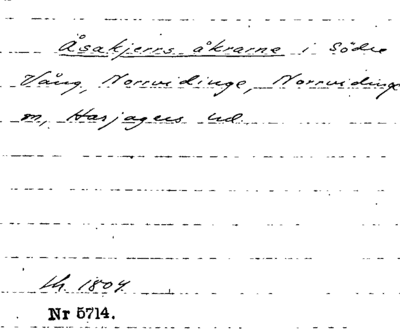 Åsakjerrs åkrarne i Södre
Vång, Norrvidinge, Norrvidinge
m, Harjagers hd.
LH. 1804
Nr 5714.